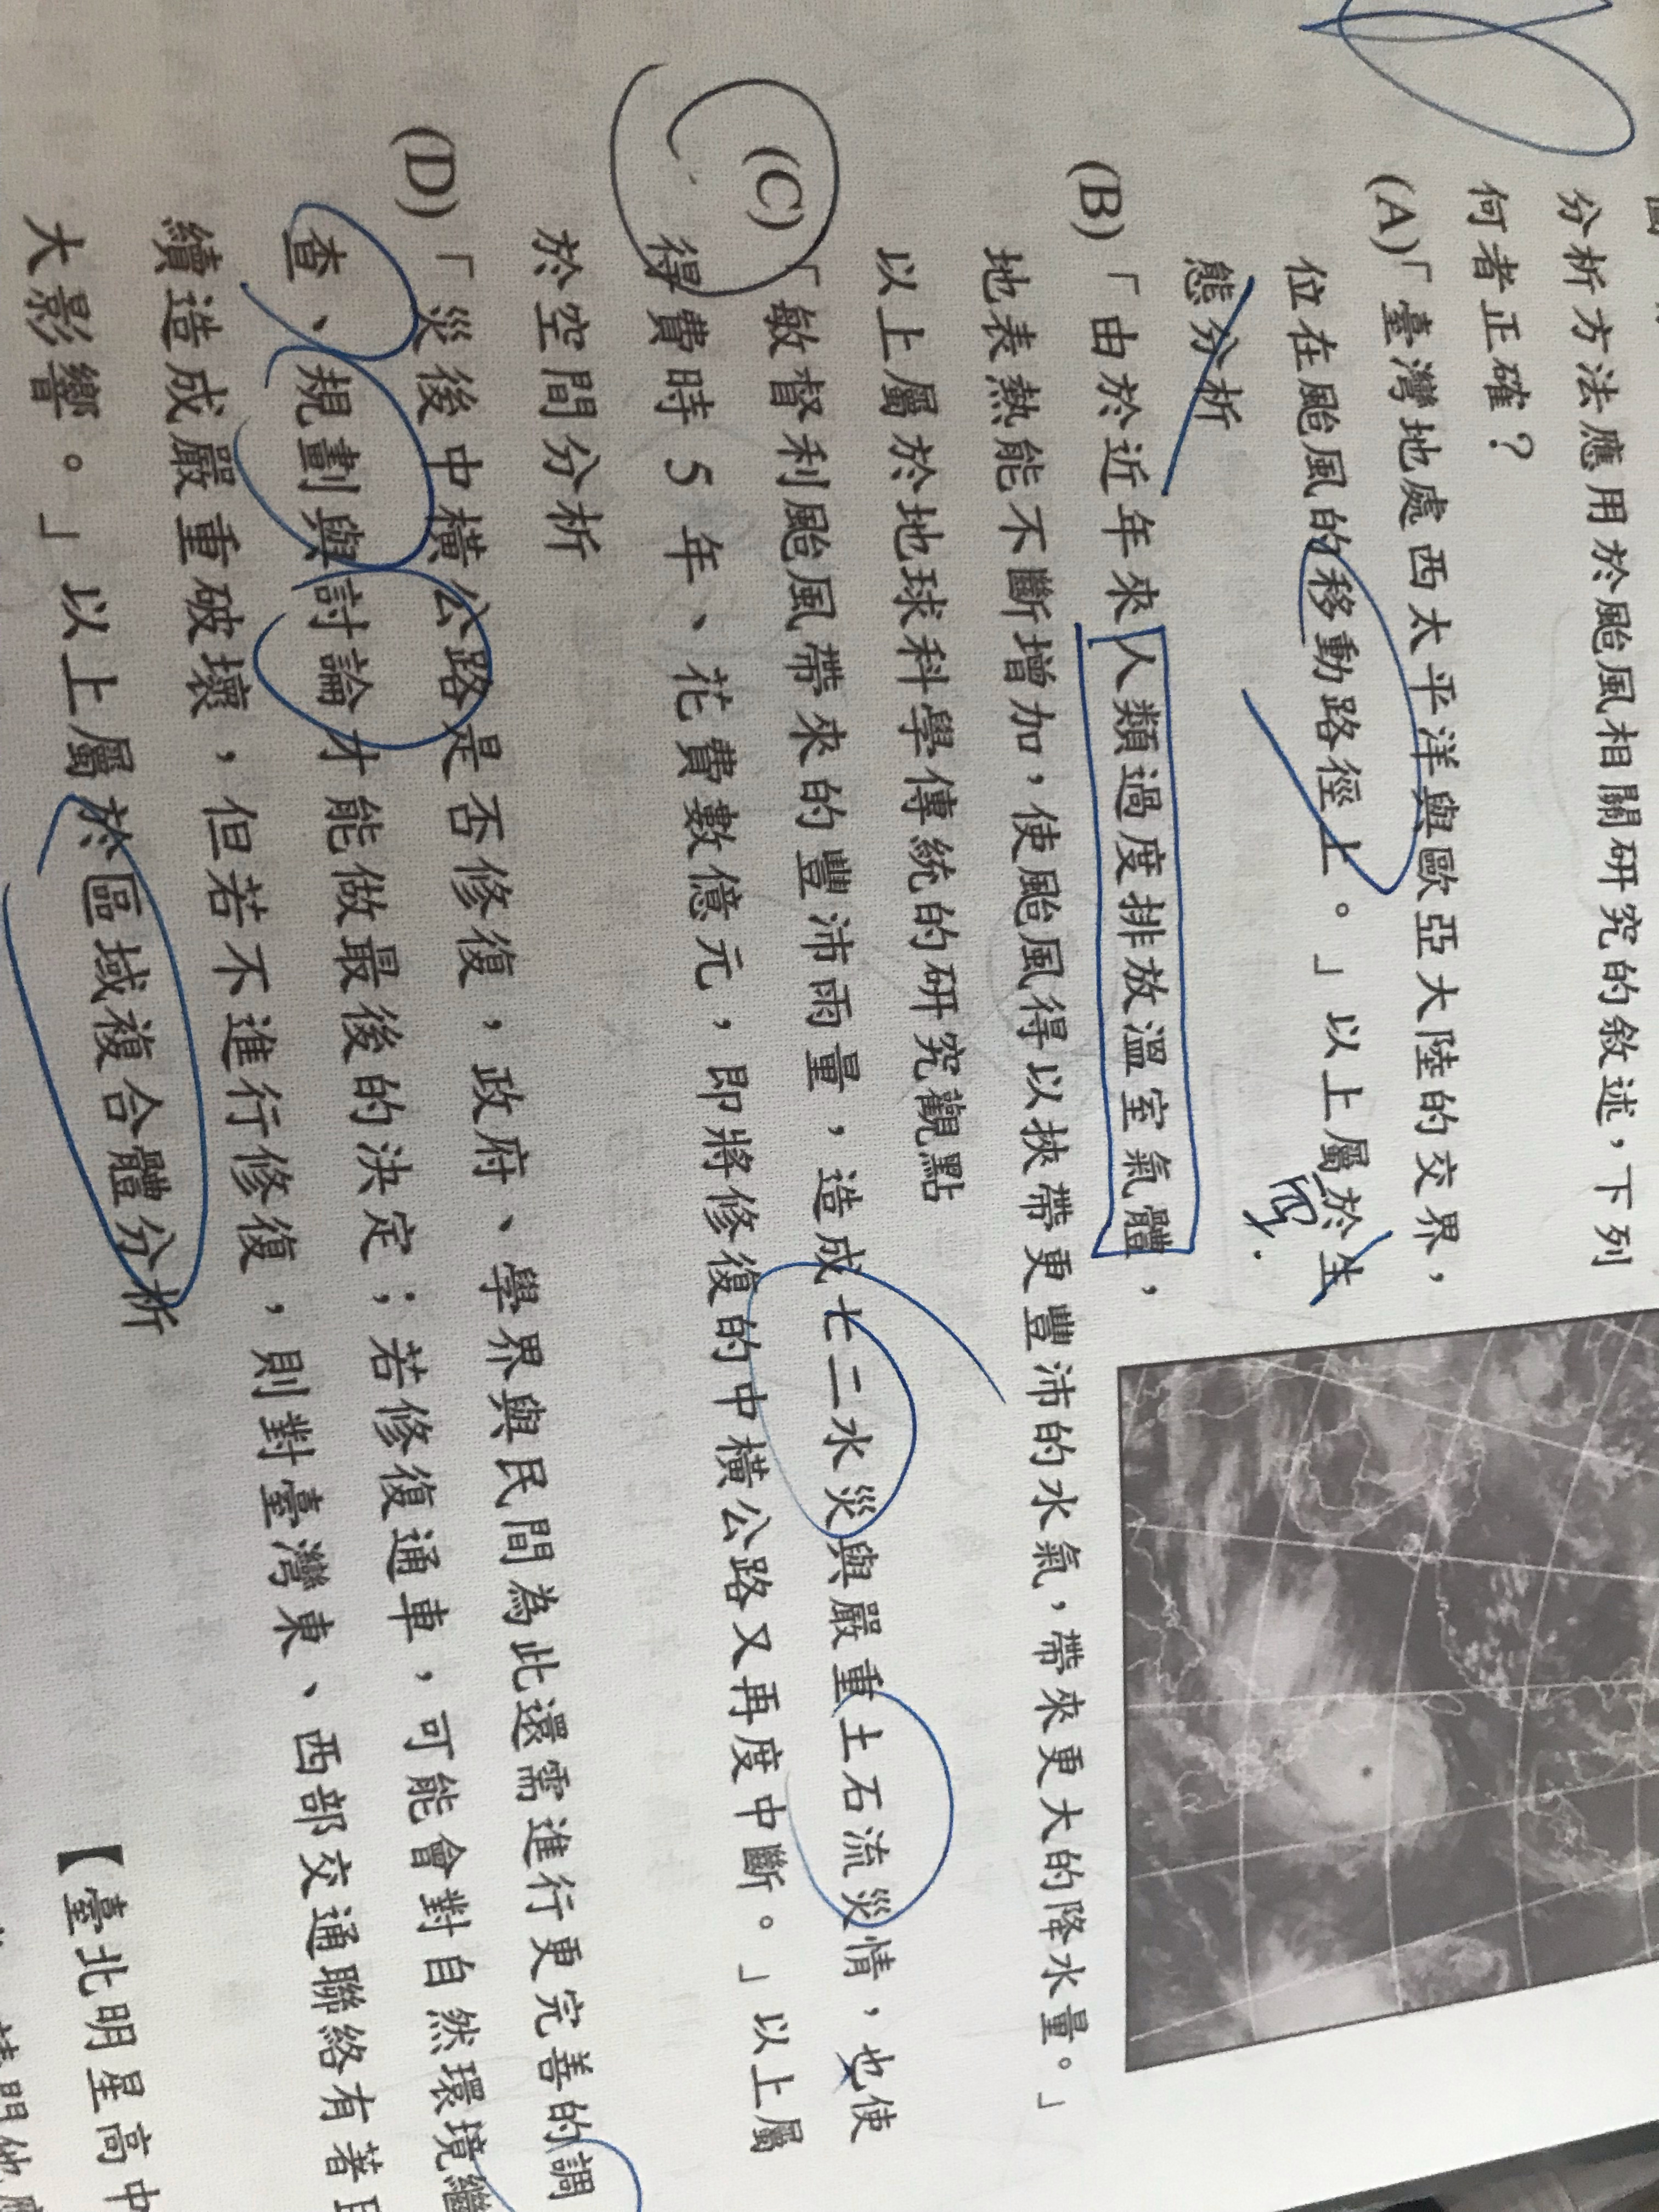 分析方法應用於颱風相關研究的敘述，下列
何者正確？
(A)「臺灣地處西太平洋與歐亞大陸的交界，
位在颱風的移動路徑上。」以上屬於生
態分析
(B)「由於近年來人類過度排放溫室氣體，
地表熱能不斷增加，使颱風得以挾帶更豐沛的水氣，帶來更大的降水量。」
以上屬於地球科學傳統的研究觀點
(C)「敏督利颱風帶來的豐沛雨量，造成七二水災與嚴重土石流災情，也使
得費時 5 年、花費數億元，即將修復的中橫公路又再度中斷。」以上屬
於空間分析
(D)「災後中橫公路是否修復，政府、學界與民間為此還需進行更完善的調
查、規劃與討論才能做最後的決定；若修復通車，可能會對自然環境繼
續造成嚴重破壞，但若不進行修復，則對臺灣東、西部交通聯絡有著
大影響。」以上屬於區域複合體分析
【臺北明星高中